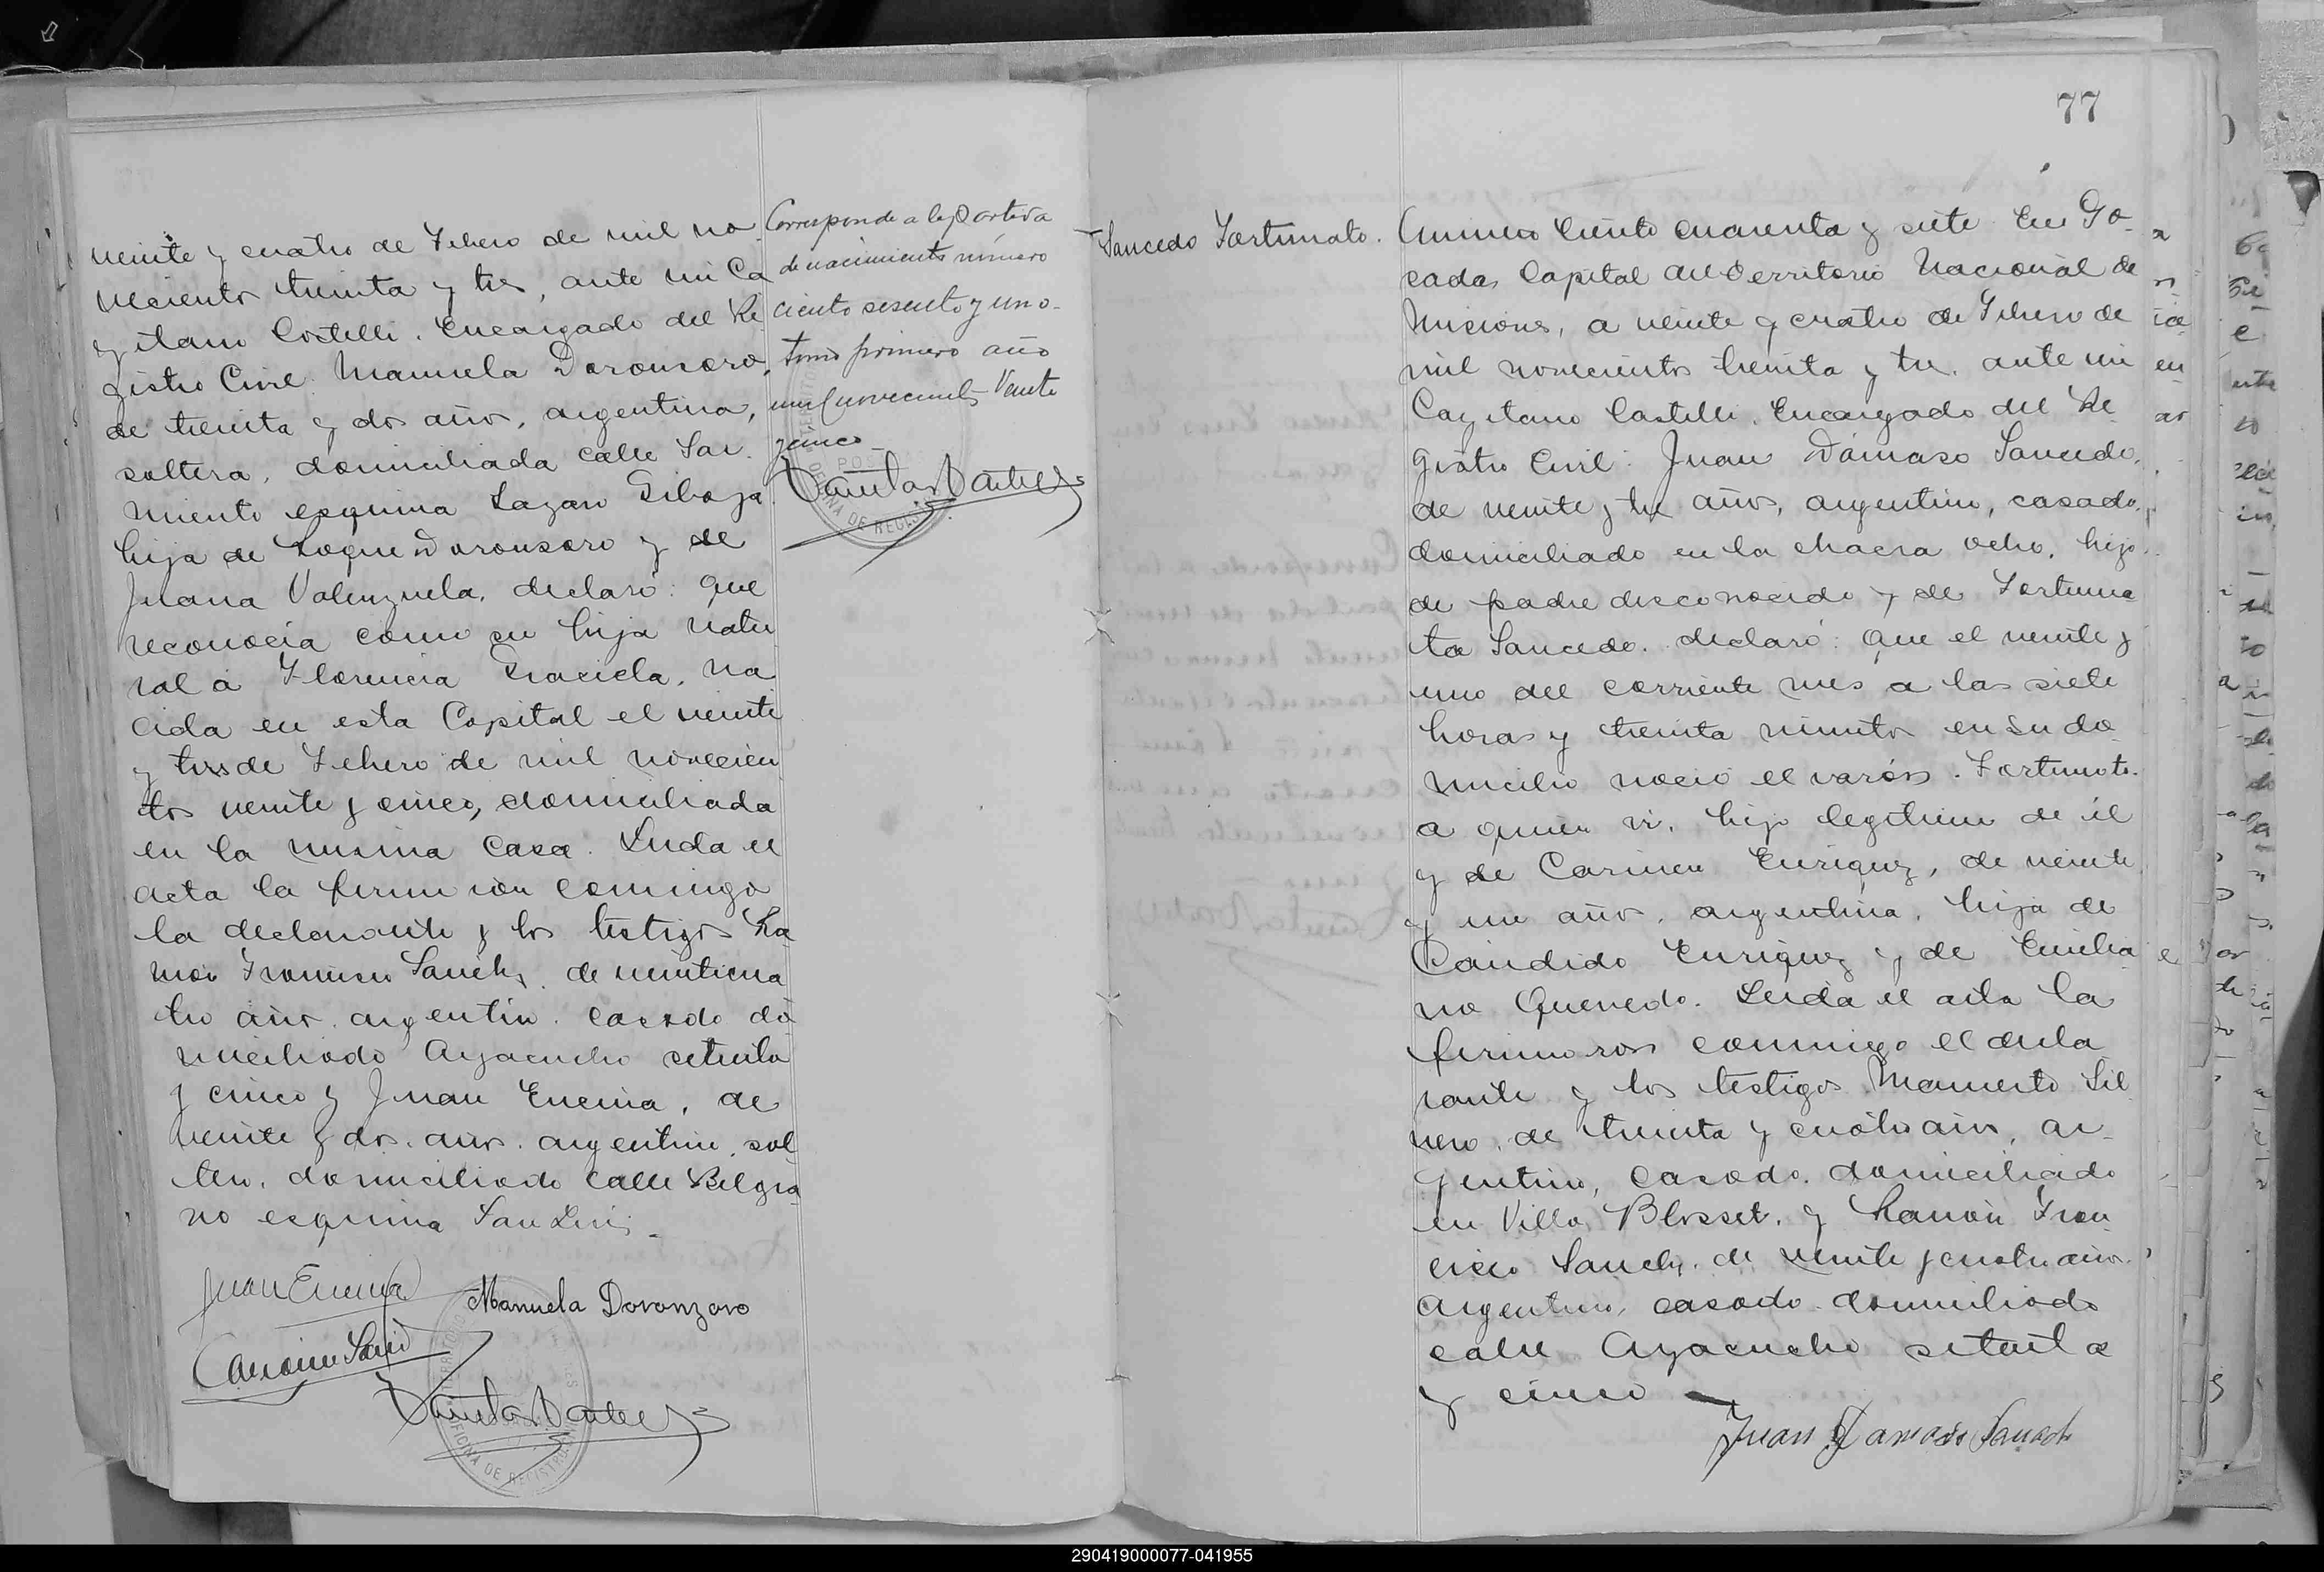 veinte y cuatro de Febrero de mil no
vecientos treinta y tres, ante mi Ca
yetano Castelli. Encargado del Re
gistro Civil. Manuela Doronsoro,
de treinta y dos años, argentina,
soltera, domiciliada calle Sar
miento esquina Lazaro Gibaja
hija de Roque Doronsoro y de
Juana Valenzuela, declaró: que
reconocía como su hija natu
ral a Florencia Graciela, na
cida en esta Capital el veinte
y tres de Febrero de mil novecien
tos veinte y cinco, domiciliada
en la misma casa. Leida el
acta la firmaron conmigo
la declarante y los testigos Ra
món Francisco Sanchez, de veinticua
tro años, argentino, casado do
miciliado Ayacucho setenta
y cinco y Juan Encina, de
veinte y dos años, argentino, sol
tero, domiciliado calle Belgra
no esquina San Luis.
Juan Encina
Manuela Doronzoro
Corresponde a la Partida
de nacimiento número
ciento sesenta y uno
tomo primero año
mil novecientos Veinte
y cinco
OFICINA DE REGISTRO
77
Saucedo Fortunato.
Número Ciento cuarenta y siete. En Po
sadas, Capital del Territorio Nacional de
Misiones, a veinte y cuatro de Febrero de
mil novecientos treinta y tres, ante mi
Cayetano Castelli, Encargado del Re
gistro Civil: Juan Dámaso Saucedo,
de veinte y tres años, argentino, casado,
domiciliado en la chacra ocho, hijo
de padre desconocido y de Fortuna
ta Saucedo, declaró: Que el veinte y
uno del corriente mes a las siete
horas y treinta minutos en su do
micilio nació el varón Fortunato
a quien vi, hijo legítimo de él
y de Carmen Enriquez, de veinte
y un años, argentina, hija de
Cándido Enriquez y de Emilia
na Quevedo. Leida el acta la
firmaron conmigo el decla
rante y los testigos Mamerto Sil
vero, de treinta y cuatro años, ar
gentino, casado, domiciliado
en Villa Blosset, y Ramón Fran
cisco Sanchez, de veinte y cuatro años,
argentino, casado, domiciliado
calle Ayacucho setenta
y cinco
Juan Damaso Saucedo
290419000077-041955